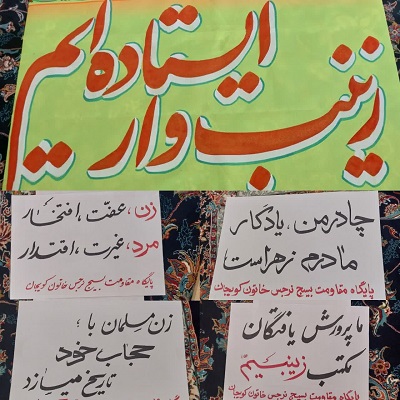 زینب وار ایستاده ایم
زن، عفت، افتخار
مرد، غیرت، اقتدار
پایگاه مقاومت بسیج نرجس خاتون کویجان
چادر من، یادگار
مادرم زهراست
پایگاه مقاومت بسیج نرجس خاتون کویجان
زن مسلمان با؛
حجاب خود
تاریخ میسازد
ما پرورش یافتگان
مکتب زینبیم
پایگاه مقاومت بسیج نرجس خاتون کویجان